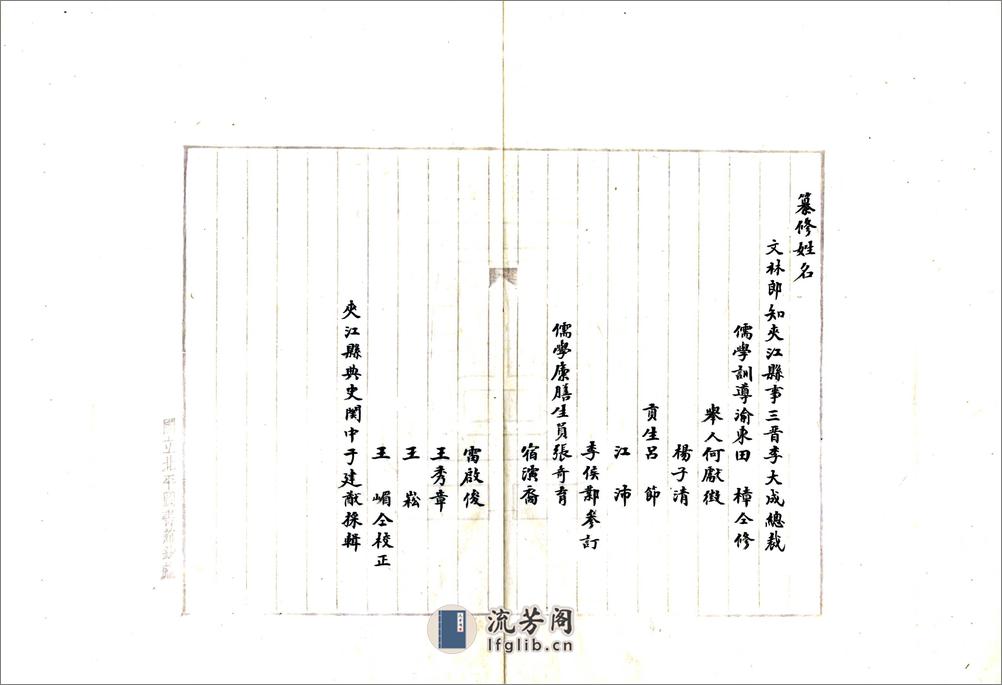 纂修姓名
文林郎知夾江縣事三晉李大成總裁
儒學訓導渝東田 樟仝修
舉人何獻徵
楊子清
貢生呂 節
江 沛
季侯鄭參訂
儒學廩膳生員張奇育
宿演裔
雷啟俊
王秀章
王 崧
王 嵋仝校正
夾江縣典史関中于建猷採輯
流芳阁
lfglib.cn